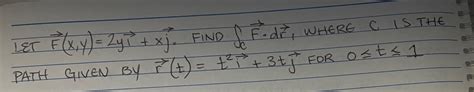 LET F⃗(x,y) = 2yi⃗ + xj⃗. FIND ∫_C F⃗·dr⃗, WHERE C IS THE
PATH GIVEN BY r⃗(t) = t²i⃗ + 3tj⃗ FOR 0≤t≤1